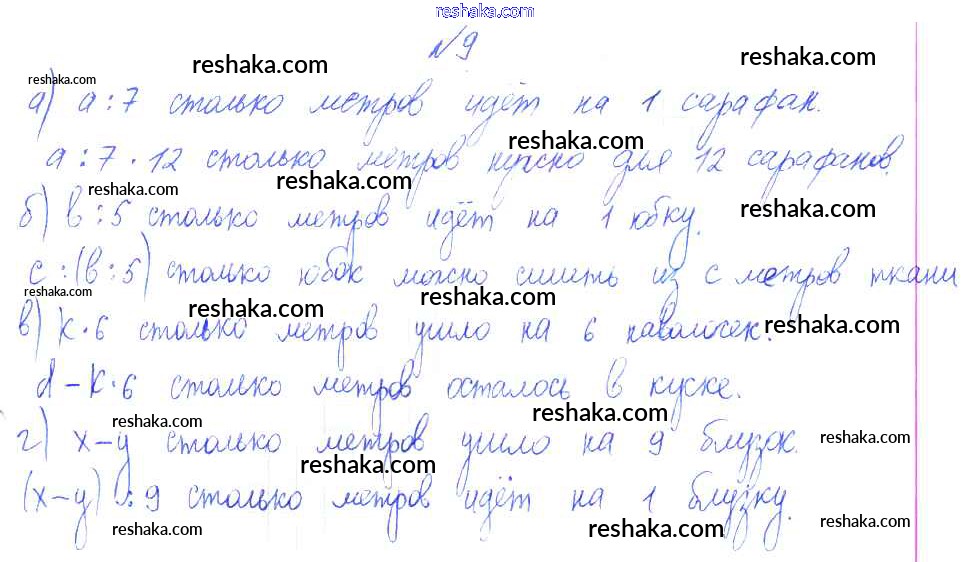 reshaka.com
№9
reshaka.com reshaka.com reshaka.com
а) a : 7 столько метров идёт на 1 сарафан.
reshaka.com
a : 7 · 12 столько метров нужно для 12 сарафанов.
reshaka.com reshaka.com
б) b : 5 столько метров идёт на 1 юбку.
reshaka.com
c : (b : 5) столько юбок можно сшить из c метров ткани
reshaka.com reshaka.com reshaka.com
в) k · 6 столько метров ушло на 6 наволочек.
reshaka.com
d - k · 6 столько метров осталось в куске.
reshaka.com reshaka.com
г) x - y столько метров ушло на 9 блузок.
reshaka.com
reshaka.com
(x - y) : 9 столько метров идёт на 1 блузку.
reshaka.com reshaka.com reshaka.com